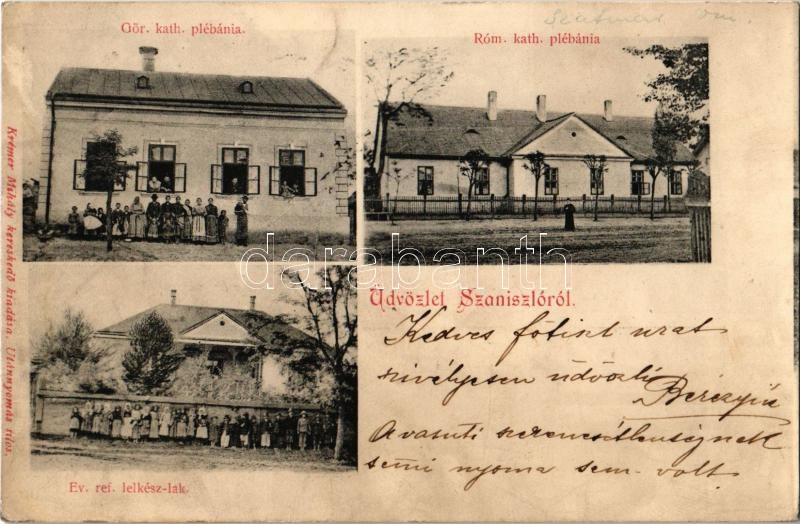 Szatmár vm.
Gör. kath. plébánia.
Róm. kath. plébánia
Krémer Mihály kereskedő kiadása. Utánnyomás tilos.
darabanth
Üdvözlet Szaniszlóról.
Kedves főtiszt urat
szivélyesen üdvözli
Bereczyné
A vasuti szerencsétlenségnek
semi nyoma sem volt
Ev. ref. lelkész-lak.